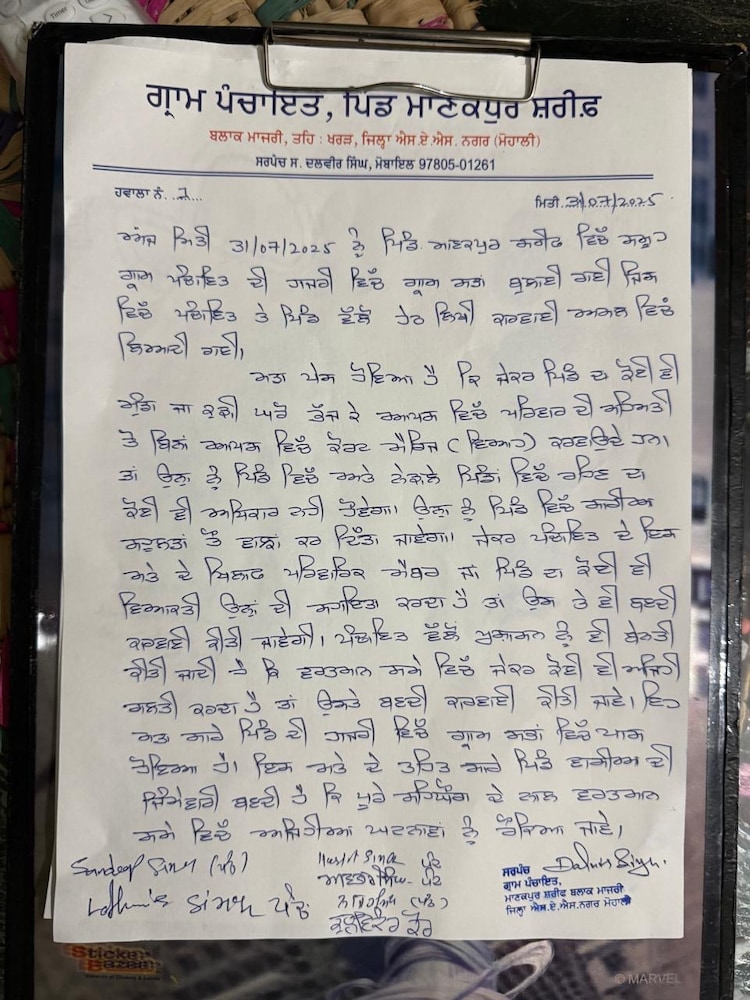 ਗ੍ਰਾਮ ਪੰਚਾਇਤ, ਪਿੰਡ ਮਾਣਕਪੁਰ ਸ਼ਰੀਫ਼
ਬਲਾਕ ਮਾਜਰੀ, ਤਹਿ : ਖਰੜ, ਜਿਲ੍ਹਾ ਐਸ.ਏ.ਐਸ. ਨਗਰ (ਮੋਹਾਲੀ)
ਸਰਪੰਚ ਸ. ਦਲਵੀਰ ਸਿੰਘ, ਮੋਬਾਇਲ 97805-01261
ਹਵਾਲਾ ਨੰ. ..1... ਮਿਤੀ. 31/07/2025
ਅੱਜ ਮਿਤੀ 31/07/2025 ਨੂੰ ਪਿੰਡ ਮਾਣਕਪੁਰ ਸ਼ਰੀਫ ਵਿੱਚ ਸਮੂਹ
ਗ੍ਰਾਮ ਪੰਚਾਇਤ ਦੀ ਹਾਜਰੀ ਵਿੱਚ ਗ੍ਰਾਮ ਸਭਾ ਬੁਲਾਈ ਗਈ ਜਿਸ
ਵਿੱਚ ਪੰਚਾਇਤ ਤੇ ਪਿੰਡ ਵੱਲੋਂ ਹੇਠ ਲਿਖੀ ਕਾਰਵਾਈ ਅਮਲ ਵਿੱਚ
ਲਿਆਂਦੀ ਗਈ।
ਮਤਾ ਪੇਸ਼ ਹੋਇਆ ਹੈ ਕਿ ਜੇਕਰ ਪਿੰਡ ਦਾ ਕੋਈ ਵੀ
ਮੁੰਡਾ ਜਾ ਕੁੜੀ ਘਰੋਂ ਭੱਜ ਕੇ ਆਪਸ ਵਿੱਚ ਪਰਿਵਾਰ ਦੀ ਸਹਿਮਤੀ
ਤੋਂ ਬਿਨਾਂ ਆਪਸ ਵਿੱਚ ਕੋਰਟ ਮੈਰਿਜ (ਵਿਆਹ) ਕਰਵਾਉਂਦੇ ਹਨ।
ਤਾਂ ਉਨ੍ਹਾਂ ਨੂੰ ਪਿੰਡ ਵਿੱਚ ਅਤੇ ਨੇੜਲੇ ਪਿੰਡਾਂ ਵਿੱਚ ਰਹਿਣ ਦਾ
ਕੋਈ ਵੀ ਅਧਿਕਾਰ ਨਹੀਂ ਹੋਵੇਗਾ। ਉਨ੍ਹਾਂ ਨੂੰ ਪਿੰਡ ਵਿੱਚ
ਸਹੂਲਤਾਂ ਤੋਂ ਵਾਂਝਾ ਕਰ ਦਿੱਤਾ ਜਾਵੇਗਾ। ਜੇਕਰ ਪੰਚਾਇਤ ਦੇ ਇਸ
ਮਤੇ ਦੇ ਖਿਲਾਫ ਪਰਿਵਾਰਿਕ ਮੈਂਬਰ ਜਾਂ ਪਿੰਡ ਦਾ ਕੋਈ ਵੀ
ਵਿਅਕਤੀ ਉਨ੍ਹਾਂ ਦੀ ਸਹਾਇਤਾ ਕਰਦਾ ਹੈ ਤਾਂ ਉਸ ਤੇ ਵੀ ਬਣਦੀ
ਕਾਰਵਾਈ ਕੀਤੀ ਜਾਵੇਗੀ। ਪੰਚਾਇਤ ਵੱਲੋਂ ਪ੍ਰਸ਼ਾਸਨ ਨੂੰ ਵੀ ਬੇਨਤੀ
ਕੀਤੀ ਜਾਂਦੀ ਹੈ ਕਿ ਵਰਤਮਾਨ ਸਮੇਂ ਵਿੱਚ ਜੇਕਰ ਕੋਈ ਵੀ ਅਜਿਹੀ
ਗਲਤੀ ਕਰਦਾ ਹੈ ਤਾਂ ਉਸਤੇ ਬਣਦੀ ਕਾਰਵਾਈ ਕੀਤੀ ਜਾਵੇ। ਇਹ
ਮਤਾ ਸਾਰੇ ਪਿੰਡ ਦੀ ਹਾਜਰੀ ਵਿੱਚ ਗ੍ਰਾਮ ਸਭਾ ਵਿੱਚ ਪਾਸ
ਹੋਇਆ ਹੈ। ਇਸ ਮਤੇ ਦੇ ਤਹਿਤ ਸਾਰੇ ਪਿੰਡ ਵਾਸੀਆਂ ਦੀ
ਜਿੰਮੇਵਾਰੀ ਬਣਦੀ ਹੈ ਕਿ ਪੂਰੇ ਸਹਿਯੋਗ ਦੇ ਨਾਲ ਵਰਤਮਾਨ
ਸਮੇਂ ਵਿੱਚ ਅਜਿਹੀਆਂ ਘਟਨਾਵਾਂ ਨੂੰ ਰੋਕਿਆ ਜਾਵੇ।
Sandeep Singh (ਪੰਚ)
Singh ਪੰਚ
ਪੰਚ
(ਪੰਚ)
ਕੁਲਵਿੰਦਰ ਕੌਰ
Dalvir Singh
ਸਰਪੰਚ
ਗ੍ਰਾਮ ਪੰਚਾਇਤ,
ਮਾਣਕਪੁਰ ਸ਼ਰੀਫ ਬਲਾਕ ਮਾਜਰੀ
ਜਿਲ੍ਹਾ ਐਸ.ਏ.ਐਸ.ਨਗਰ ਮੋਹਾਲੀ
Sticker
Bazaar
© MARVEL